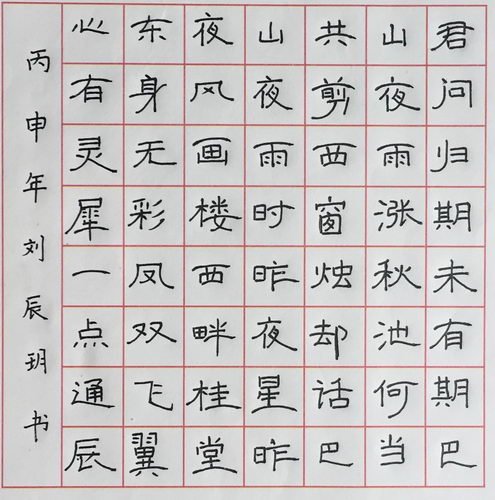 君问归期未有期巴
山夜雨涨秋池何当
共剪西窗烛却话巴
山夜雨时昨夜星昨
夜风画楼西畔桂堂
东身无彩凤双飞翼
心有灵犀一点通辰
丙申年刘辰玥书